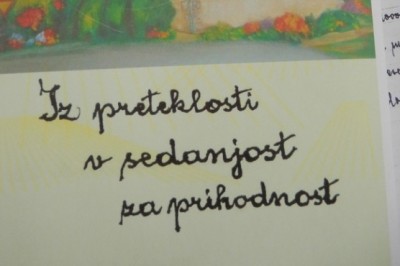 Iz preteklosti
v sedanjost
za prihodnost